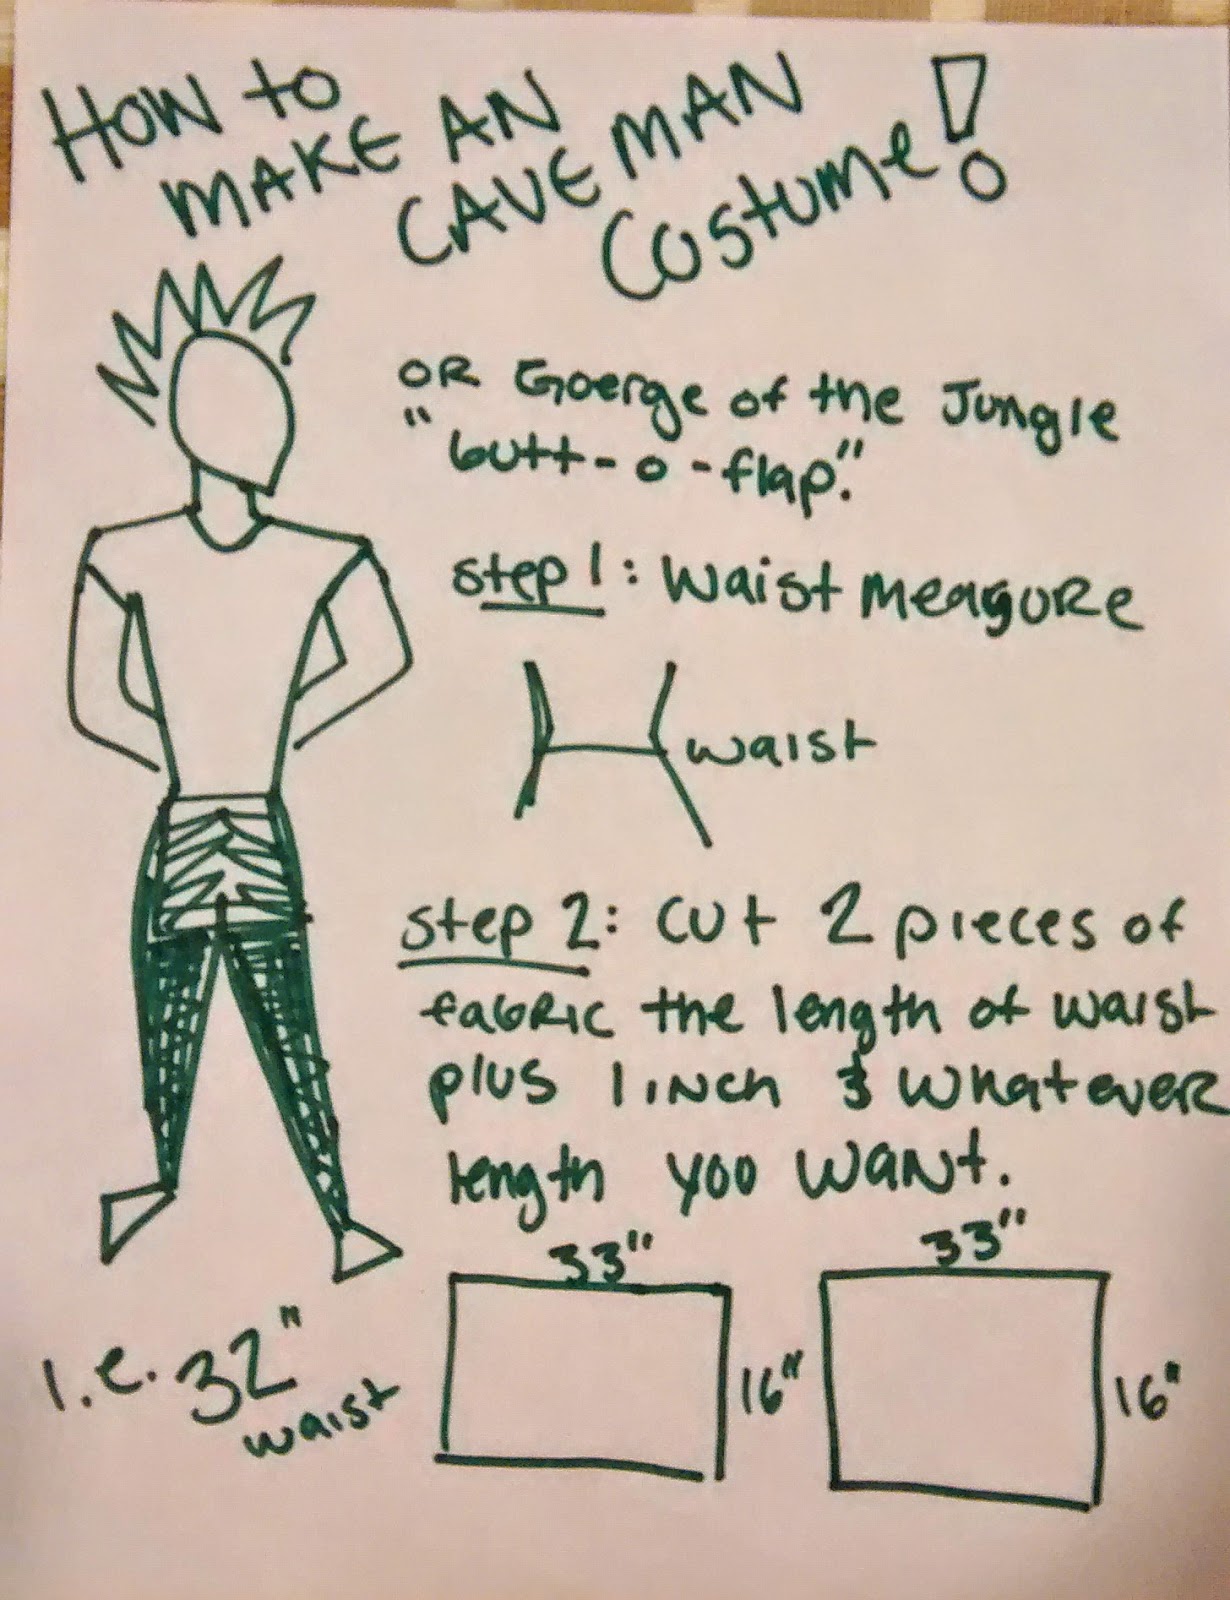 HOW to
MAKE AN
CAVE MAN
Costume!
OR Goerge of the Jungle
"butt-o-flap."
Step 1: Waist Measure
waist
Step 2: Cut 2 pieces of
fabric the length of waist
plus 1 inch & whatever
length you want.
33" 33"
16" 16"
i.e. 32"
waist